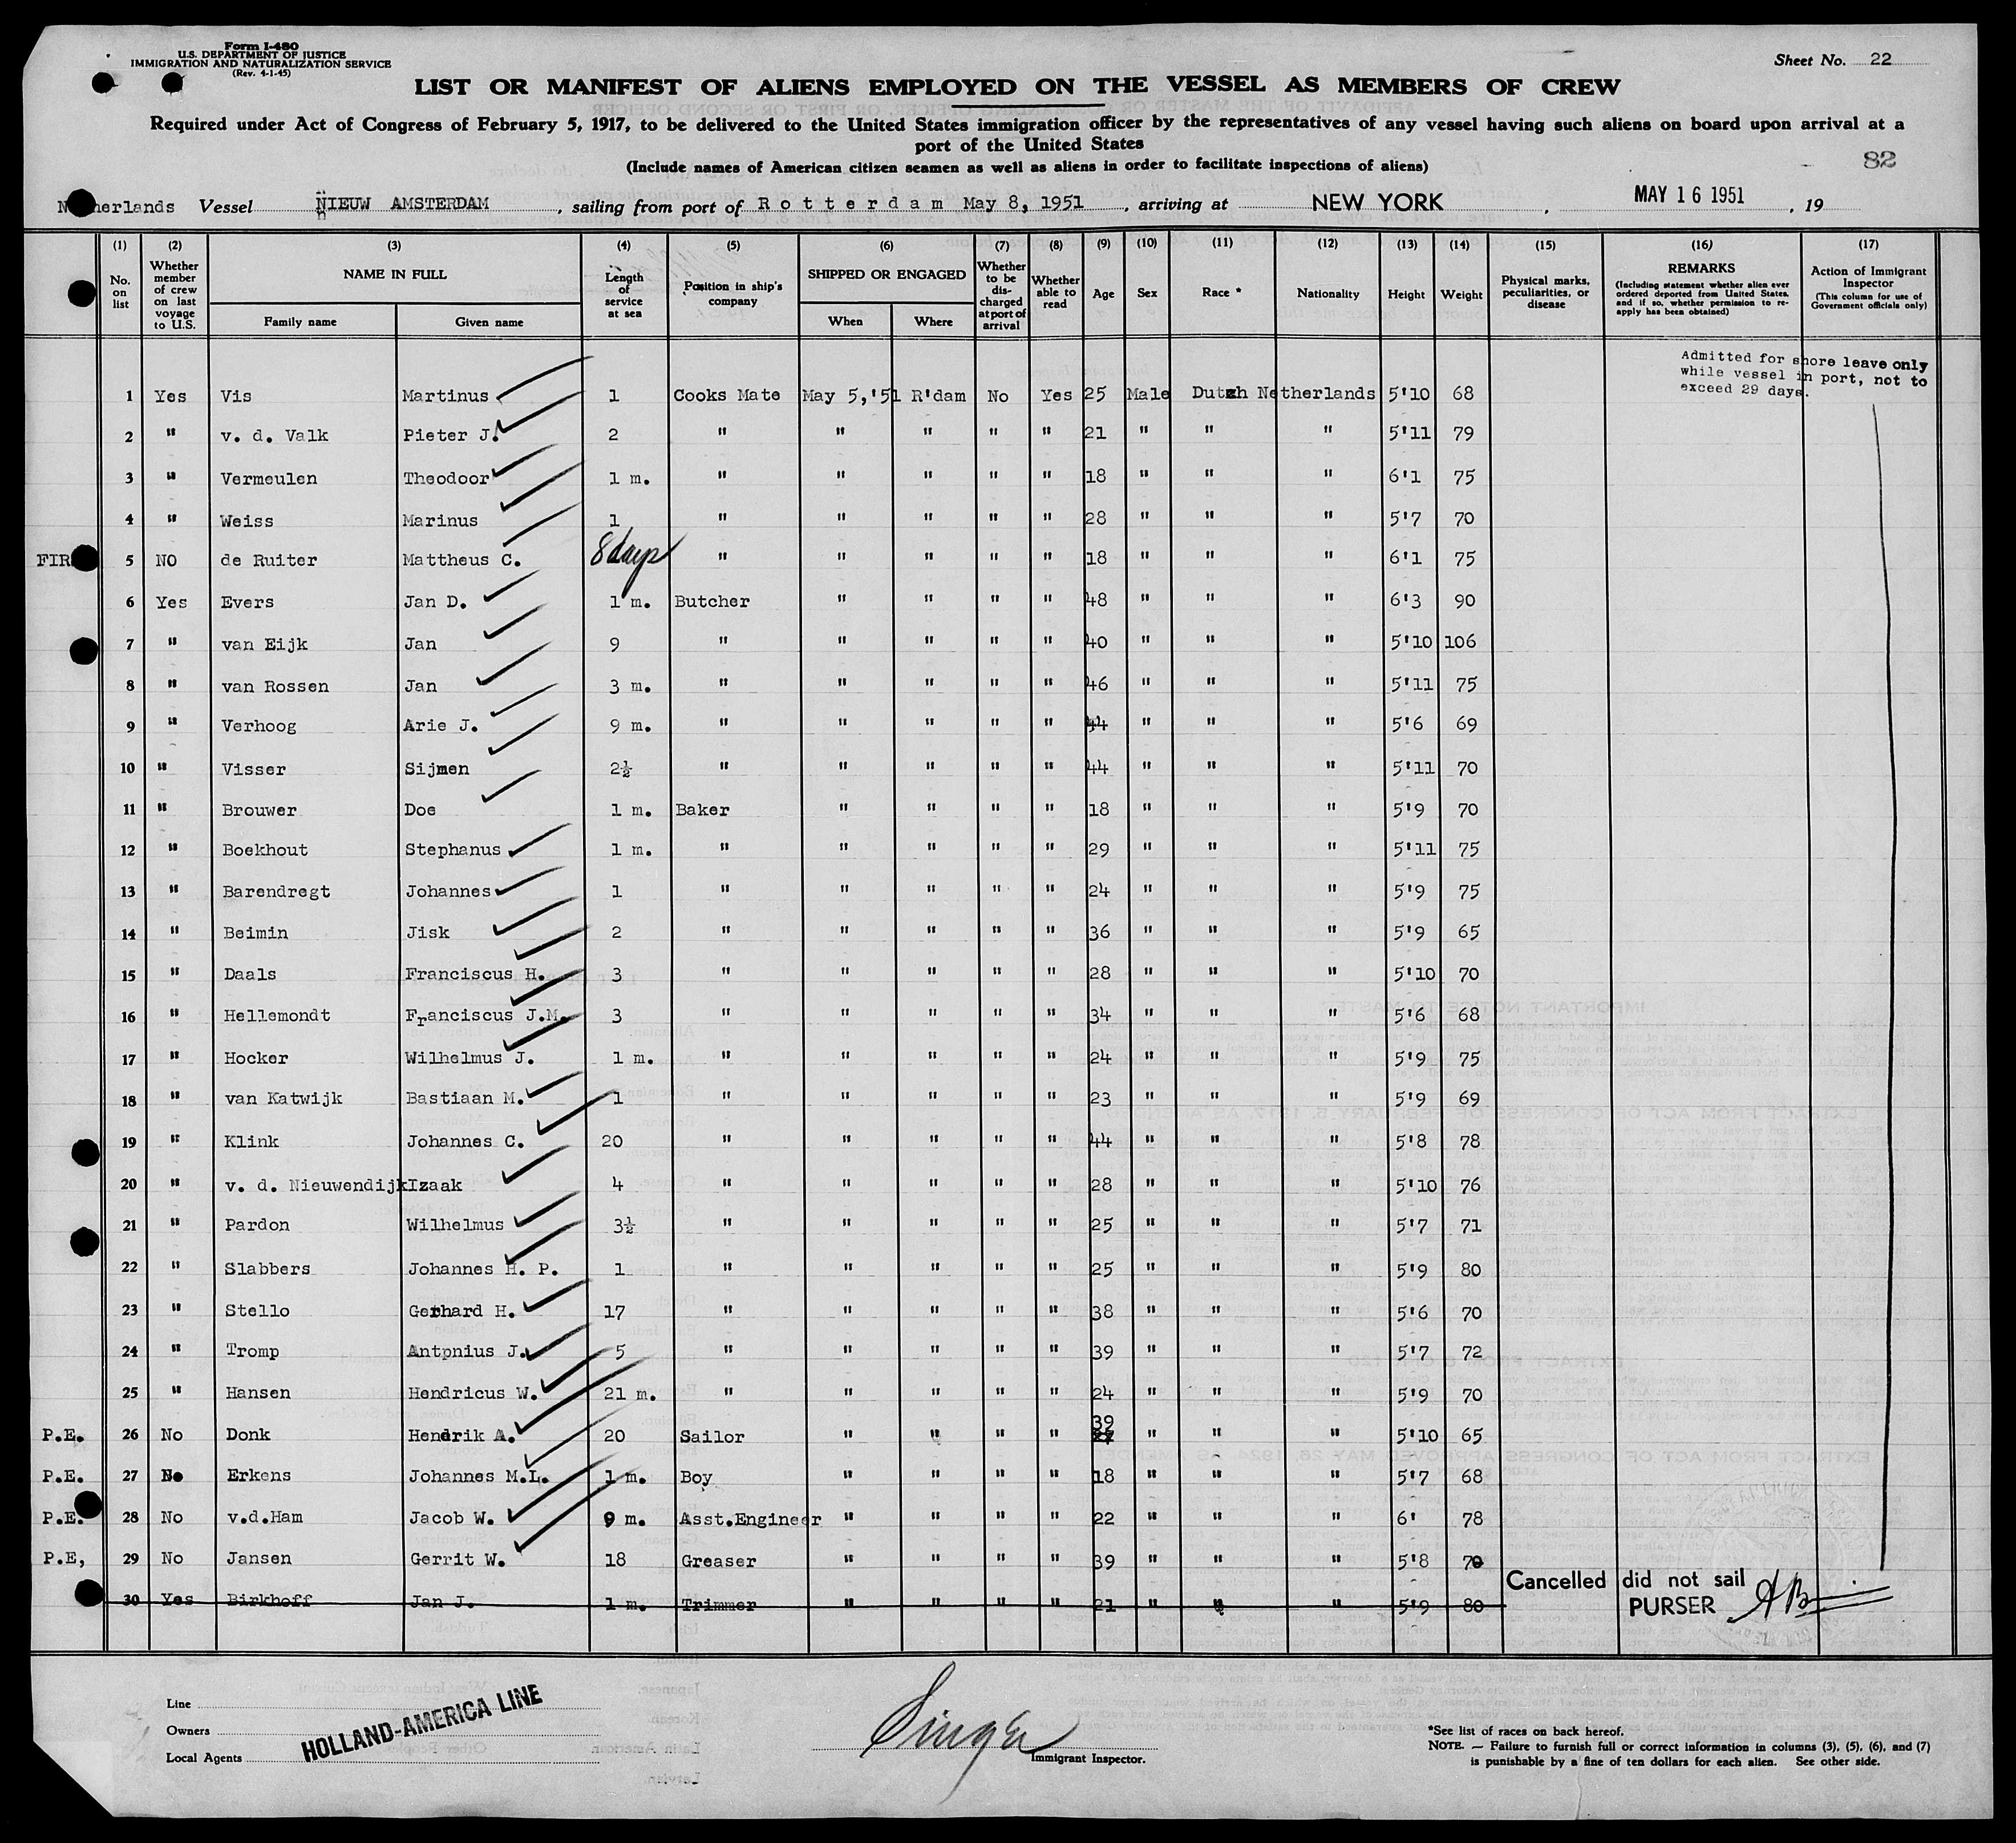 Form I-480
U.S. DEPARTMENT OF JUSTICE
IMMIGRATION AND NATURALIZATION SERVICE
(Rev. 4-1-45)
Sheet No. 22
LIST OR MANIFEST OF ALIENS EMPLOYED ON THE VESSEL AS MEMBERS OF CREW
Required under Act of Congress of February 5, 1917, to be delivered to the United States immigration officer by the representatives of any vessel having such aliens on board upon arrival at a
port of the United States
(Include names of American citizen seamen as well as aliens in order to facilitate inspections of aliens)
82
Vessel NIEUW AMSTERDAM, sailing from port of Rotterdam May 8, 1951, arriving at NEW YORK, MAY 16 1951, 19
(1) (2) (3) (4) (5) (6) (7) (8) (9) (10) (11) (12) (13) (14) (15) (16) (17)
No. on list
Whether member of crew on last voyage to U.S.
NAME IN FULL
Family name
Given name
Length of service at sea
Position in ship's company
SHIPPED OR ENGAGED
When
Where
Whether to be discharged at port of arrival
Whether able to read
Age
Sex
Race *
Nationality
Height
Weight
Physical marks, peculiarities, or disease
REMARKS
(Including statement whether alien ever ordered deported from United States, and if so, whether permission to reapply has been obtained)
Action of Immigrant Inspector
(This column for use of Government officials only)
Admitted for shore leave only
while vessel in port, not to
exceed 29 days.
1 Yes Vis Martinus 1 Cooks Mate May 5,'51 R'dam No Yes 25 Male Dutch Netherlands 5'10 68
2 " v. d. Valk Pieter J. 2 " " " " " 21 " " " 5'11 79
3 " Vermeulen Theodoor 1 m. " " " " " 18 " " " 6'1 75
4 " Weiss Marinus 1 " " " " " 28 " " " 5'7 70
5 NO de Ruiter Mattheus C. 8 days " " " " " 18 " " " 6'1 75
6 Yes Evers Jan D. 1 m. Butcher " " " " 48 " " " 6'3 90
7 " van Eijk Jan 9 " " " " " 40 " " " 5'10 106
8 " van Rossen Jan 3 m. " " " " " 46 " " " 5'11 75
9 " Verhoog Arie J. 9 m. " " " " " 44 " " " 5'6 69
10 " Visser Sijmen 2½ " " " " " 44 " " " 5'11 70
11 " Brouwer Doe 1 m. Baker " " " " 18 " " " 5'9 70
12 " Boekhout Stephanus 1 m. " " " " " 29 " " " 5'11 75
13 " Barendregt Johannes 1 " " " " " 24 " " " 5'9 75
14 " Beimin Jisk 2 " " " " " 36 " " " 5'9 65
15 " Daals Franciscus H. 3 " " " " " 28 " " " 5'10 70
16 " Hellemondt Franciscus J.M. 3 " " " " " 34 " " " 5'6 68
17 " Hocker Wilhelmus J. 1 m. " " " " " 24 " " " 5'9 75
18 " van Katwijk Bastiaan M. 1 " " " " " 23 " " " 5'9 69
19 " Klink Johannes C. 20 " " " " " 44 " " " 5'8 78
20 " v. d. Nieuwendijk Izaak 4 " " " " " 28 " " " 5'10 76
21 " Pardon Wilhelmus 3½ " " " " " 25 " " " 5'7 71
22 " Slabbers Johannes H. P. 1 " " " " " 25 " " " 5'9 80
23 " Stello Gerhard H. 17 " " " " " 38 " " " 5'6 70
24 " Tromp Antpnius J. 5 " " " " " 39 " " " 5'7 72
25 " Hansen Hendricus W. 21 m. " " " " " 24 " " " 5'9 70
P.E. 26 No Donk Hendrik A. 20 Sailor " " " " 39 " " " 5'10 65
P.E. 27 No Erkens Johannes M.L. 1 m. Boy " " " " 18 " " " 5'7 68
P.E. 28 No v.d.Ham Jacob W. 9 m. Asst.Engineer " " " " 22 " " " 6' 78
P.E, 29 No Jansen Gerrit W. 18 Greaser " " " " 39 " " " 5'8 70
30 Yes Birkhoff Jan J. 1 m. Trimmer " " " " 21 " " " 5'9 80
Cancelled did not sail
PURSER
Line
Owners
Local Agents
HOLLAND-AMERICA LINE
Singer
Immigrant Inspector.
*See list of races on back hereof.
NOTE. — Failure to furnish full or correct information in columns (3), (5), (6), and (7)
is punishable by a fine of ten dollars for each alien. See other side.